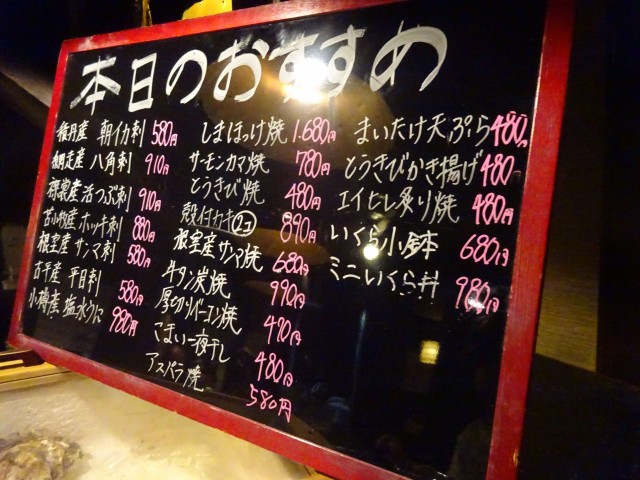 本日のおすすめ
積丹産 朝イカ刺 580円
網走産 八角刺 910円
活つぶ刺 910円
苫小牧産 ホッキ刺 880円
根室産 サンマ刺 580円
古平産 平目刺 580円
小樽産 塩水うに 980円
しまほっけ焼 1.680円
サーモンカマ焼 780円
とうきび焼 480円
殻付カキ 2コ 890円
根室産サンマ焼 680円
牛タン炭焼 990円
厚切りベーコン焼 490円
こまい一夜干し 480円
アスパラ焼 580円
まいたけ天ぷら 480円
とうきびかき揚げ 480円
エイヒレ炙り焼 480円
いくら小鉢 680円
ミニいくら丼 980円